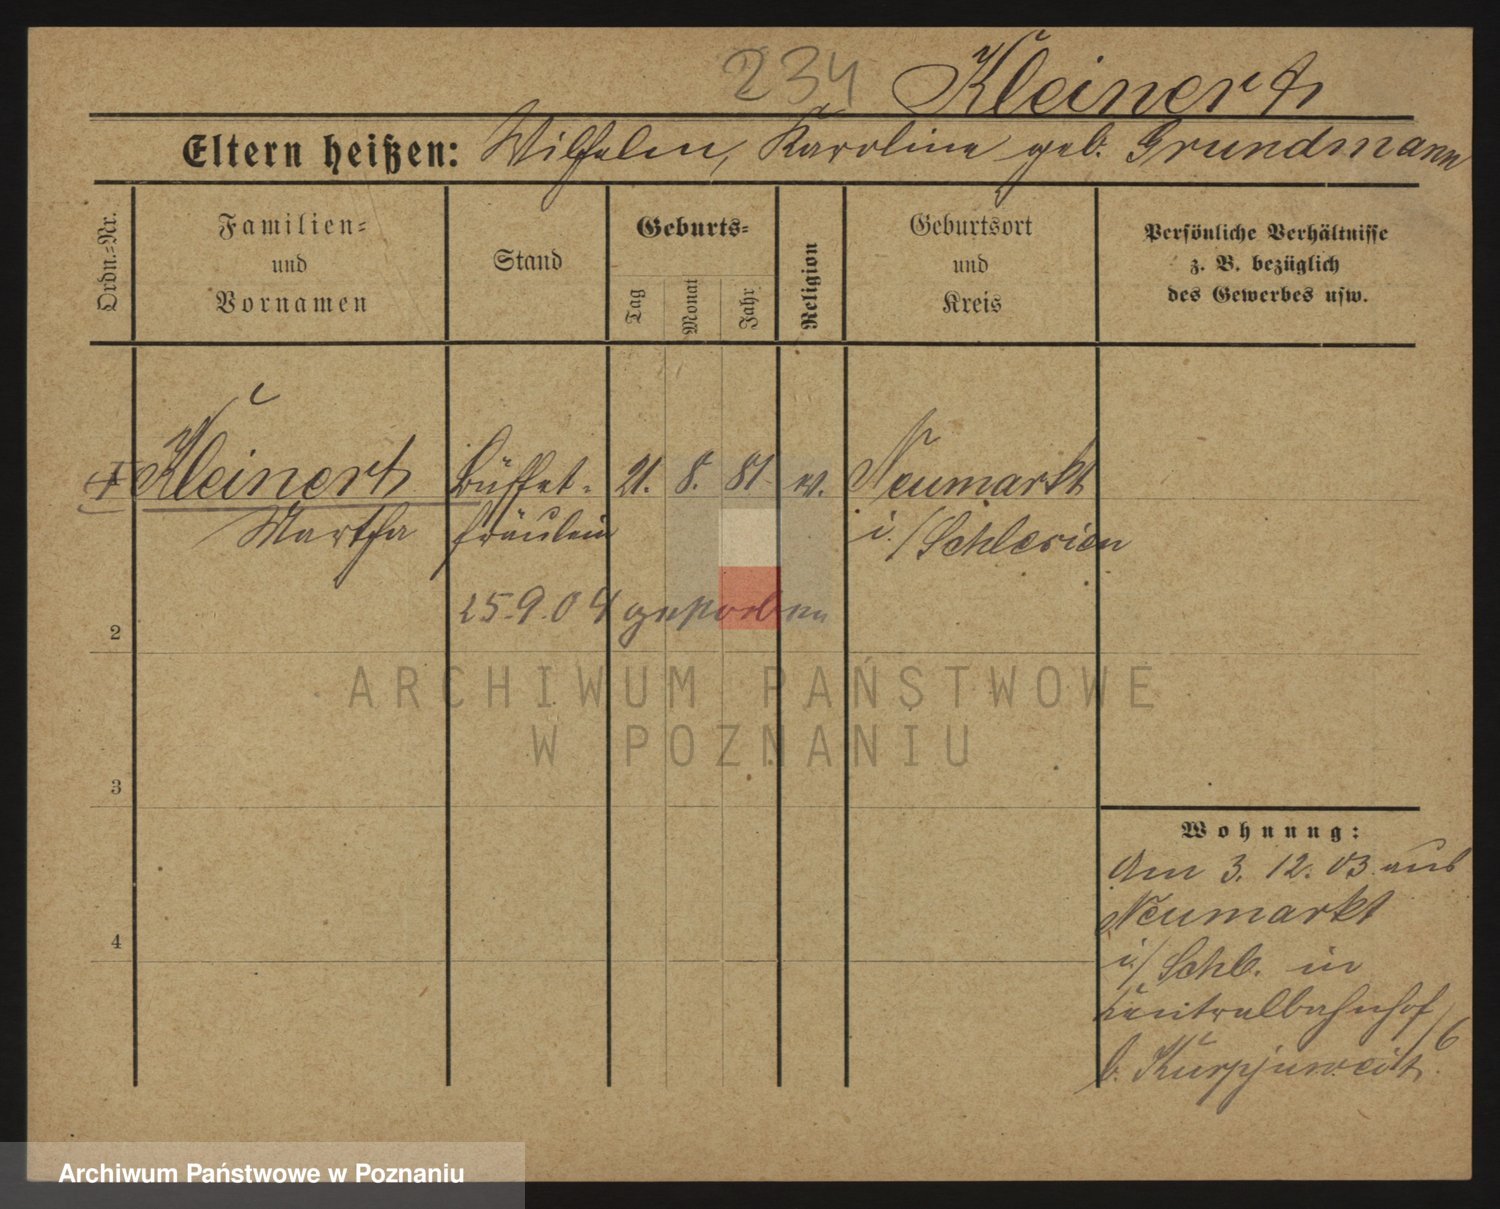 234 Kleinert
Eltern heißen: Wilhelm, Karoline geb. Grundmann
Ordn.-Nr.
Familien-
und
Vornamen
Stand
Geburts-
Tag
Monat
Jahr
Religion
Geburtsort
und
Kreis
Persönliche Verhältnisse
z. B. bezüglich
des Gewerbes usw.
Kleinert Büffet- 21. 8. 81. ev. Neumarkt
Martha fräulein i./Schlesien
25.9.04 gestorben
2
3
4
Wohnung:
Am 3. 12. 03 aus
Neumarkt
i./Schles. in
Centralbahnhof
b. Kurpjuweit
ARCHIWUM PAŃSTWOWE
W POZNANIU
Archiwum Państwowe w Poznaniu